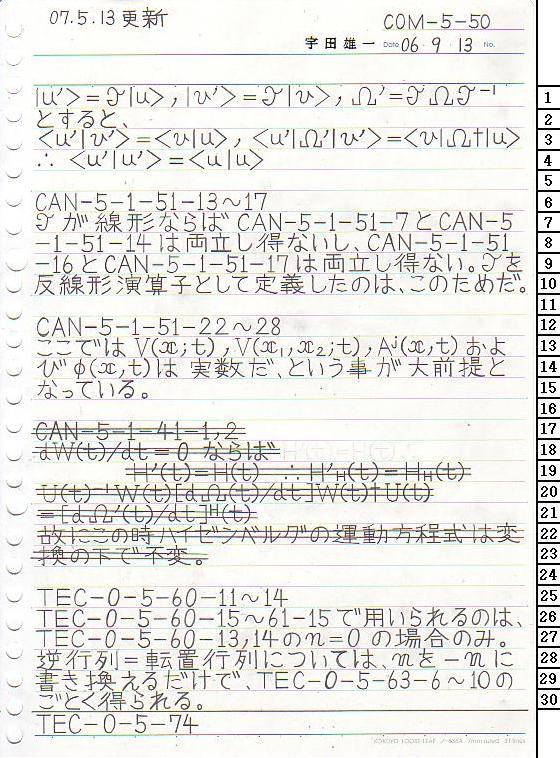 07.5.13更新
COM-5-50
宇田雄一 Date 06・9・13 No.
|u'>=𝒯|u>, |v'>=𝒯|v>, Ω'=𝒯Ω𝒯⁻¹
とすると、
<u'|v'>=<v|u>, <u'|Ω'|v'>=<v|Ω†|u>
∴ <u'|u'>=<u|u>
CAN-5-1-51-13~17
𝒯が線形ならばCAN-5-1-51-7とCAN-5
-1-51-14は両立し得ないし、CAN-5-1-51
-16とCAN-5-1-51-17は両立し得ない。𝒯を
反線形演算子として定義したのは、このためだ。
CAN-5-1-51-22~28
ここではV(x;t), V(x₁,x₂;t), Aʲ(x,t)およ
びφ(x,t)は実数だ、という事が大前提と
なっている。
CAN-5-1-41-1,2
dW(t)/dt=0ならば
H'(t)=H(t) ∴H'ʜ(t)=Hʜ(t)
U(t)⁻¹W(t)[dΩ(t)/dt]W(t)†U(t)
=[dΩ'(t)/dt]ᴴ(t)
故にこの時ハイゼンベルグの運動方程式は変
換の下で不変。
TEC-0-5-60-11~14
TEC-0-5-60-15~61-15で用いられるのは、
TEC-0-5-60-13,14のn=0の場合のみ。
逆行列=転置行列については、nを-nに
書き換えるだけで、TEC-0-5-63-6~10の
ごとく得られる。
TEC-0-5-74
KOKUYO LOOSE-LEAF
1
2
3
4
5
6
7
8
9
10
11
12
13
14
15
16
17
18
19
20
21
22
23
24
25
26
27
28
29
30